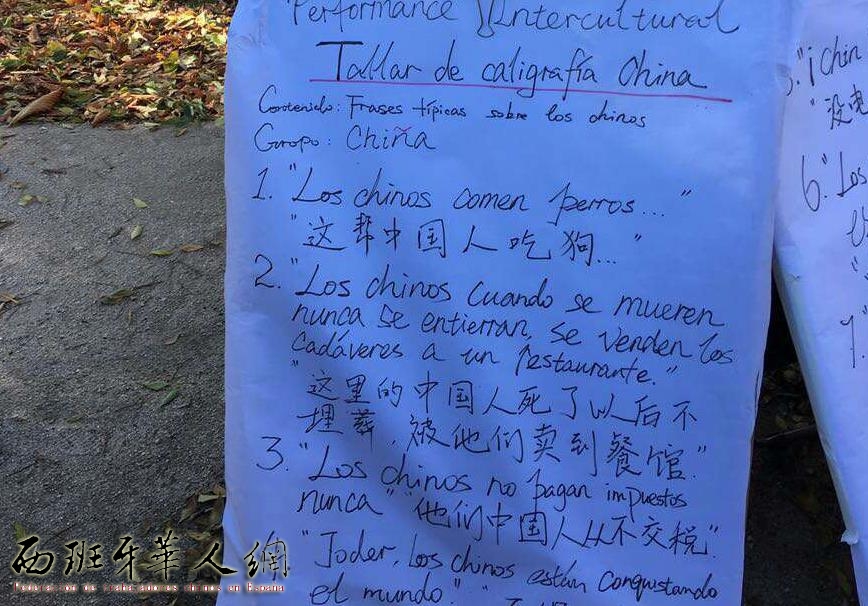 Performance Intercultural
Tallar de caligrafía China
Contenido: Frases típicas sobre los chinos
Guropo: China
1. "Los chinos comen perros..."
"这帮中国人吃狗..."
2. "Los chinos cuando se mueren
nunca se entierran, se venden los
cadáveres a un restaurante."
"这里的中国人死了以后不
埋葬，被他们卖到餐馆."
3. "Los chinos no pagan impuestos
nunca" "他们中国人从不交税"
"Joder, los chinos están conquistando
el mundo."
"¡Chin
"没
6. "Los
7. "
西班牙華人網